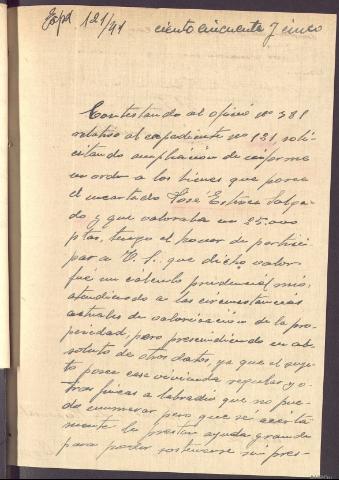 Expd 121/41
ciento cincuenta y cinco
Contestando al oficio nº 381
relativo al expediente nº 121, soli-
citando ampliación de informe
en orden a los bienes que posee
el encartado José Salga-
do y que valoraba en 25.000
ptas, tengo el honor de partici-
par a V. S. que dicho valor
fué un cálculo prudencial mio,
atendiendo a las circunstancias
actuales de valorización de la pro-
piedad; pero prescindiendo en ab-
soluto de otros datos, ya que el suge-
to posee casa vivienda regular y o-
tras fincas a labradio que no pue-
do enumerar pero que sé cierta-
mente le prestan ayuda grande
para poder sostenerse sin pres-